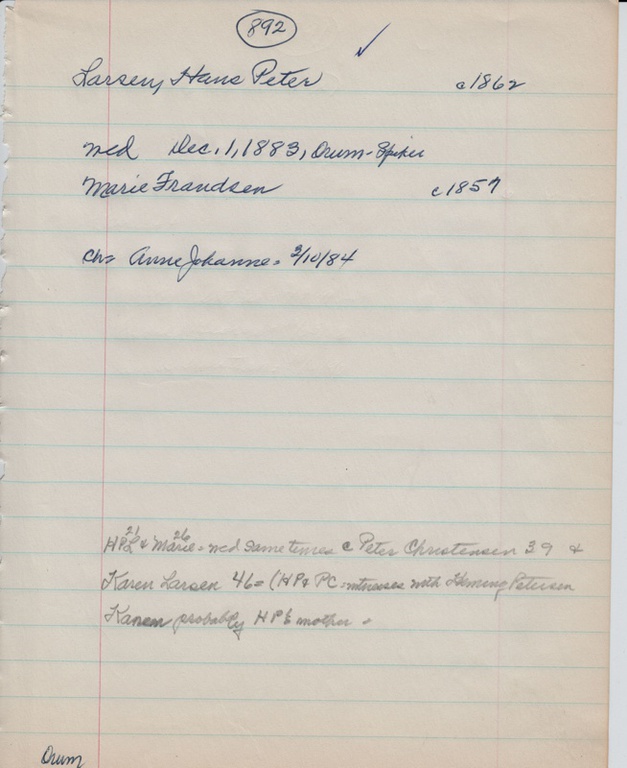 892 ✓
Larsen, Hans Peter c1862
med Dec. 1, 1883, Orum-
Marie Frandsen c1857
Ch= Anne Johanne= 3/10/84
21 26
HPL & Marie= med same time as c Peter Christensen 39 &
Karen Larsen 46= (HP & PC witnesses with Petersen
Karen probably HP's mother -
Orum